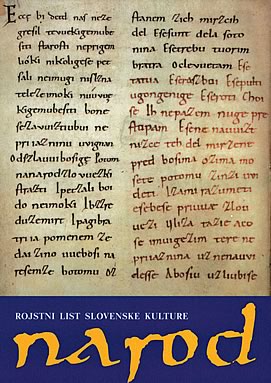 Ecce bi detd naſ neze
greſil tevuekigemube
ſiti ſtaroſti neprigem
lióki nikoligeſe pet
ſali neimugi niſlzna
teleſe imoki nuúvue
kigemubeſiti bone
ſezavuiztibui ne
priiazninu uvignan
Odſzlauuibosige Potom
nanarodzlovuezki
ſtraſti Ipetzali boi
do neimoki Ibzzre
duzemirt Ipagibra
triia pomenem ze
dai zinouuebosi na
resemze botomu oz
ſtanem zich mirzcih
del Eſeſunt dela ſoto
nina Eſetrebu tuorim
bratra Oclevuetam Eſe
tatua Eſeraſboi Eſepulti
ugongenige Eſeroti Choi
ſe Ih nepazem nuge pre
ſtopam Eſene nauuizt
nizce teh del mirzene
pred bosima ozima mo
zete potomu zinzi uvi
deti Izami razumeti
eſebeſe priuuae zlou
vezi Ulliza tazie aco
ſe imuigezim tere ne
priiaznina uznenauvi
desſe Abosiu uzliubise
ROJSTNI LIST SLOVENSKE KULTURE
narod